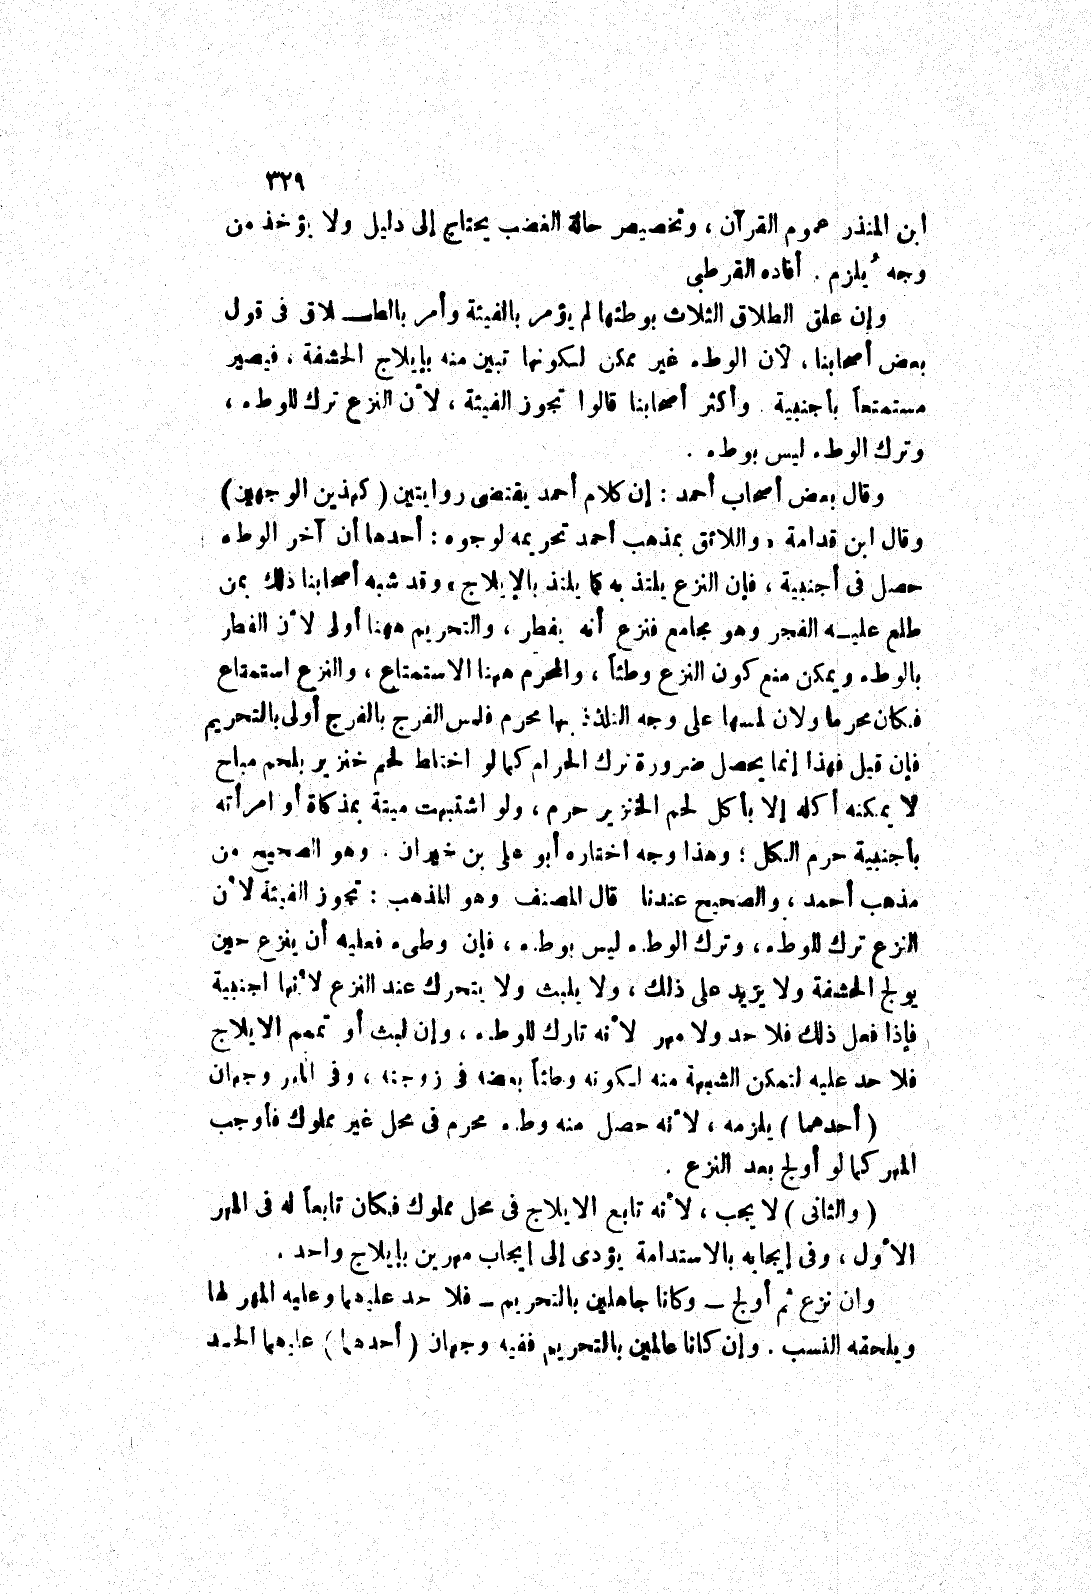 ٣٢٩
ابن المنذر عموم القرآن ، وتخصيص حالة الغضب يحتاج إلى دليل ولا يؤخذ من
وجه يُلزم . أفاده القرطبى
وإن علق الطلاق الثلاث بوطئها لم يؤمر بالفيئة وأمر بالطــلاق فى قول
بعض أصحابنا ، لأن الوطء غير ممكن لكونها تبين منه بإيلاج الحشفة ، فيصير
مستمتعاً بأجنبية . وأكثر أصحابنا قالوا تجوز الفيئة ، لأن النزع ترك للوطء ،
وترك الوطء ليس بوطء .
وقال بعض أصحاب أحمد : إن كلام أحمد يقتضى روايتين ( كهذين الوجهين )
وقال ابن قدامة ، واللائق بمذهب أحمد تحريمه لوجوه : أحدها أن آخر الوطء
حصل فى أجنبية ، فإن النزع يلتذ به كما يلتذ بالإيلاج ، وقد شبه أصحابنا ذلك بمن
طلع عليــه الفجر وهو مجامع فنزع أنه يفطر ، والتحريم ههنا أولى لأن الفطر
بالوطء ويمكن منع كون النزع وطئاً ، والمحرم ههنا الاستمتاع ، والنزع استمتاع
فكان محرما ولان لمسها على وجه التلذذ بها محرم فلمس الفرج بالفرج أولى بالتحريم
فإن قيل فهذا إنما يحصل ضرورة ترك الحرام كما لو اختلط لحم خنزير بلحم مباح
لا يمكنه أكله إلا بأكل لحم الخنزير حرم ، ولو اشتبهت ميتة بمذكاة أو امرأته
بأجنبية حرم الكل ؛ وهذا وجه اختاره أبو على بن خيران . وهو الصحيح من
مذهب أحمد ، والصحيح عندنا قال المصنف وهو المذهب : تجوز الفيئة لأن
النزع ترك للوطء ، وترك الوطء ليس بوطء ، فإن وطىء فعليه أن ينزع حين
يولج الحشفة ولا يزيد على ذلك ، ولا يلبث ولا يتحرك عند النزع لأنها اجنبية
فإذا فعل ذلك فلا حد ولا مهر لأنه تارك للوطء ، وإن لبث أو تمم الايلاج
فلا حد عليه لتمكن الشبهة منه لكونه وطئاً بعضه فى زوجته ، وفى المهر وجهان
( أحدهما ) يلزمه ، لأنه حصل منه وطء محرم فى محل غير مملوك فأوجب
المهر كما لو أولج بعد النزع .
( والثانى ) لا يجب ، لأنه تابع الايلاج فى محل مملوك فكان تابعاً له فى المهر
الأول ، وفى إيجابه بالاستدامة يؤدى إلى إيجاب مهرين بإيلاج واحد .
وان نزع ثم أولج – وكانا جاهلين بالتحريم – فلا حد عليهما وعليه المهر لها
ويلحقه النسب . وإن كانا عالمين بالتحريم ففيه وجهان ( أحدهما ) عليهما الحـد